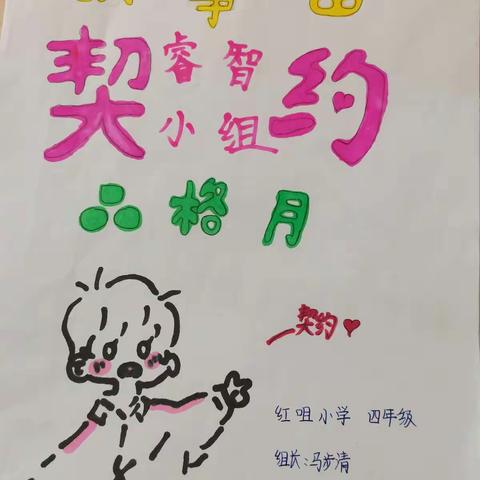 契睿智约
小组
品格月
契约
红咀小学 四年级
组长:马步清